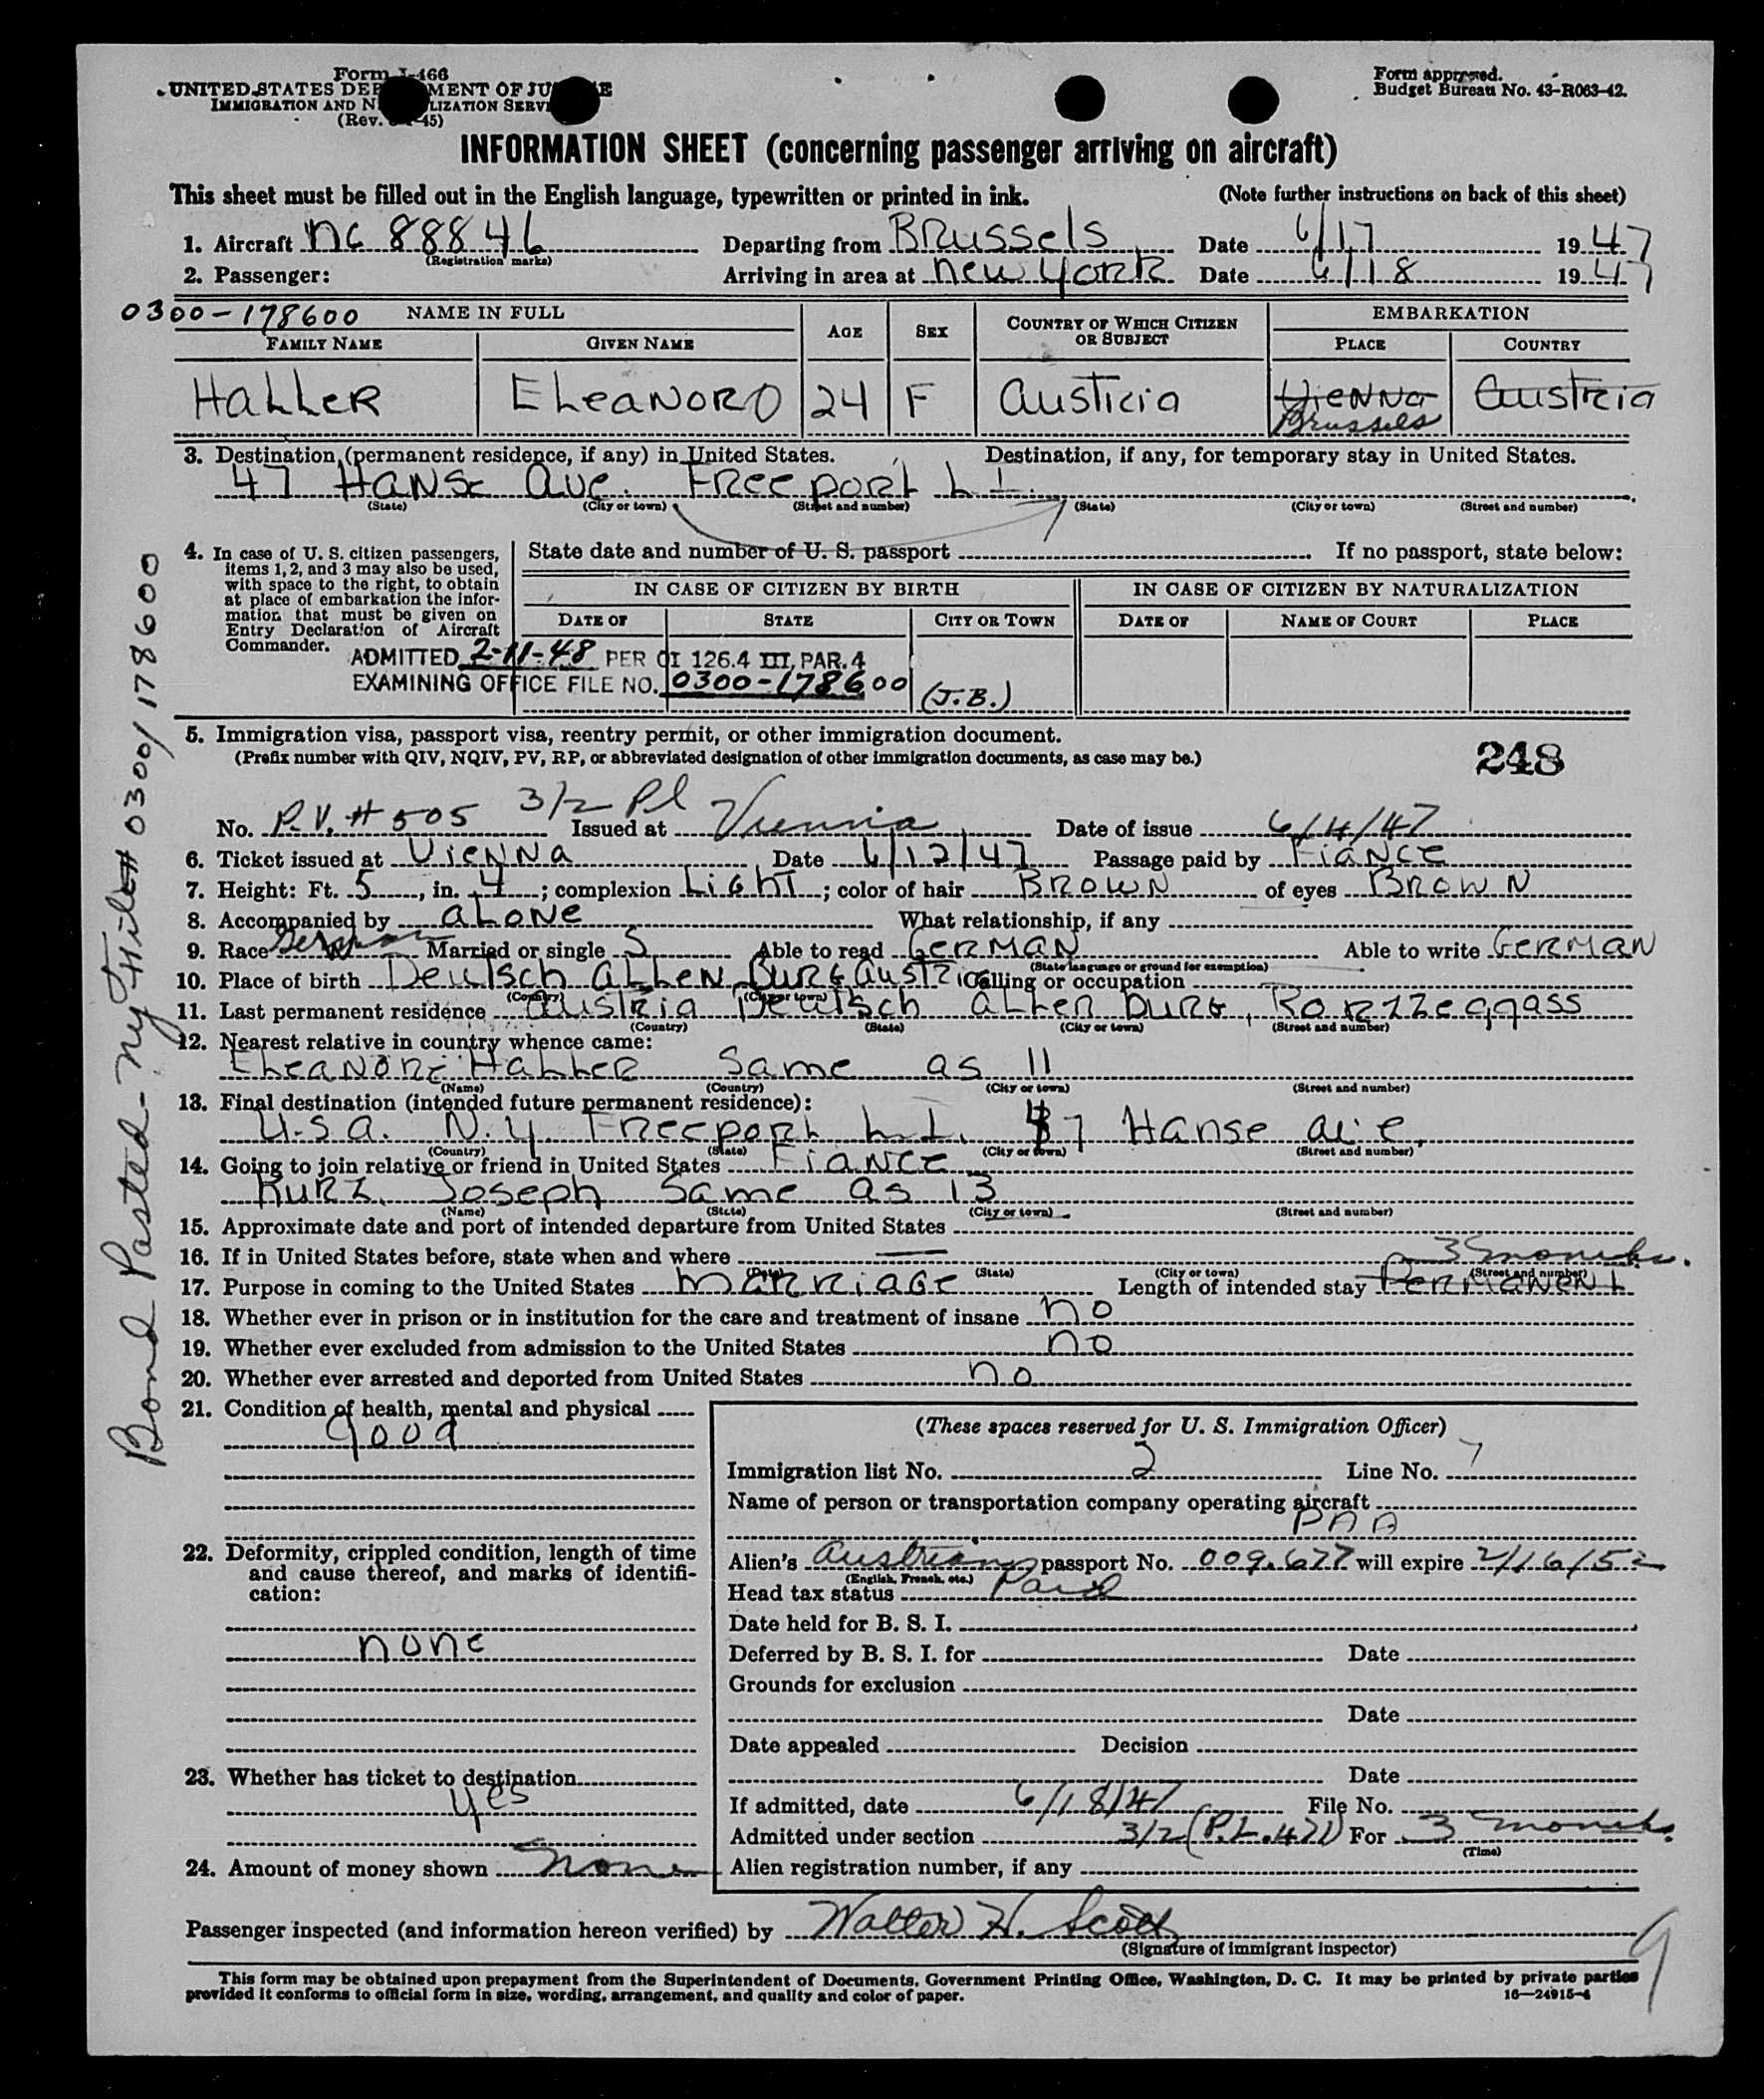 Form I-466
UNITED STATES DEP MENT OF JU E
IMMIGRATION AND N LIZATION SERVI
(Rev. 45)
Form approved.
Budget Bureau No. 43-R063-42.
INFORMATION SHEET (concerning passenger arriving on aircraft)
This sheet must be filled out in the English language, typewritten or printed in ink. (Note further instructions on back of this sheet)
1. Aircraft NC 88846 Departing from Brussels Date 6/17 1947
(Registration marks)
2. Passenger: Arriving in area at New York Date 6/18 1947
0300-178600 NAME IN FULL AGE SEX COUNTRY OF WHICH CITIZEN OR SUBJECT EMBARKATION
FAMILY NAME GIVEN NAME PLACE COUNTRY
Haller Eleanoro 24 F Austria Vienna Austria
Brussels
3. Destination (permanent residence, if any) in United States. Destination, if any, for temporary stay in United States.
47 Hanse Ave. Freeport L I.
(State) (City or town) (Street and number) (State) (City or town) (Street and number)
4. In case of U. S. citizen passengers, items 1, 2, and 3 may also be used, with space to the right, to obtain at place of embarkation the information that must be given on Entry Declaration of Aircraft Commander.
State date and number of U. S. passport If no passport, state below:
IN CASE OF CITIZEN BY BIRTH IN CASE OF CITIZEN BY NATURALIZATION
DATE OF STATE CITY OR TOWN DATE OF NAME OF COURT PLACE
ADMITTED 2-11-48 PER OI 126.4 III, PAR. 4
EXAMINING OFFICE FILE NO. 0300-178600 (J.B.)
5. Immigration visa, passport visa, reentry permit, or other immigration document.
(Prefix number with QIV, NQIV, PV, RP, or abbreviated designation of other immigration documents, as case may be.)
248
3/2 Pl
No. P.V. # 505 Issued at Vienna Date of issue 6/4/47
6. Ticket issued at Vienna Date 6/12/47 Passage paid by Fiance
7. Height: Ft. 5, in. 4; complexion Light; color of hair Brown of eyes Brown
8. Accompanied by alone What relationship, if any
9. Race German Married or single S Able to read German Able to write German
(State language or ground for exemption)
10. Place of birth Deutsch Altenburg Austria Calling or occupation
(Country) (City or town)
11. Last permanent residence Austria Deutsch Altenburg,
(Country) (State) (City or town) (Street and number)
12. Nearest relative in country whence came:
Eleanore Haller Same as 11
(Name) (Country) (City or town) (Street and number)
13. Final destination (intended future permanent residence):
U.S.A. N.Y. Freeport L.I. 47 Hanse ave.
(Country) (State) (City or town) (Street and number)
14. Going to join relative or friend in United States Fiance
Kurz Joseph Same as 13
(Name) (State) (City or town) (Street and number)
15. Approximate date and port of intended departure from United States
16. If in United States before, state when and where
(Date) (State) (City or town) (Street and number)
3 months.
17. Purpose in coming to the United States Marriage Length of intended stay Permanent
18. Whether ever in prison or in institution for the care and treatment of insane no
19. Whether ever excluded from admission to the United States no
20. Whether ever arrested and deported from United States no
21. Condition of health, mental and physical
good
22. Deformity, crippled condition, length of time and cause thereof, and marks of identification:
none
23. Whether has ticket to destination
yes
24. Amount of money shown None
(These spaces reserved for U. S. Immigration Officer)
Immigration list No. 2 Line No. 7
Name of person or transportation company operating aircraft
PAA
Alien's Austrian passport No. 009.677 will expire 2/16/52
(English, French, etc.)
Head tax status Paid
Date held for B. S. I.
Deferred by B. S. I. for Date
Grounds for exclusion
Date
Date appealed Decision
Date
If admitted, date 6/18/47 File No.
Admitted under section 3/2 (P.L. 471) For 3 months.
(Time)
Alien registration number, if any
Passenger inspected (and information hereon verified) by Walter H. Scott
(Signature of immigrant inspector)
9
This form may be obtained upon prepayment from the Superintendent of Documents, Government Printing Office, Washington, D. C. It may be printed by private parties
provided it conforms to official form in size, wording, arrangement, and quality and color of paper. 16—24915-4
Bond Posted - NY File # 0300/178600